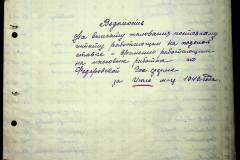 Ведомость
На выплату жалования постоянному
штату работающим на годовой
ставке и временно работающим
на массовых работах по
Федоровской
за Июль м-ц 1942 года